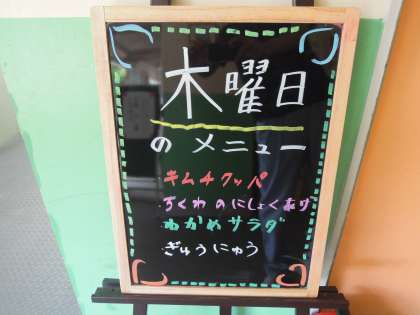 木曜日
の メニュー
キムチクッパ
ちくわ の にしょくあげ
わかめ サラダ
ぎゅうにゅう